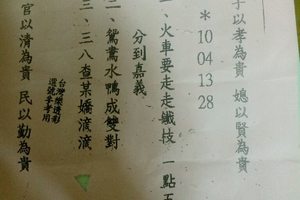 子以孝為貴 媳以賢為貴
*10 04 13 28
一、火車要走走鐵枝 一點五
分到嘉義
二、鴛鴦水鴨成雙對
三、三八查某嬌滴滴
台灣樂透彩
選號參考用
官以清為貴 民以勤為貴